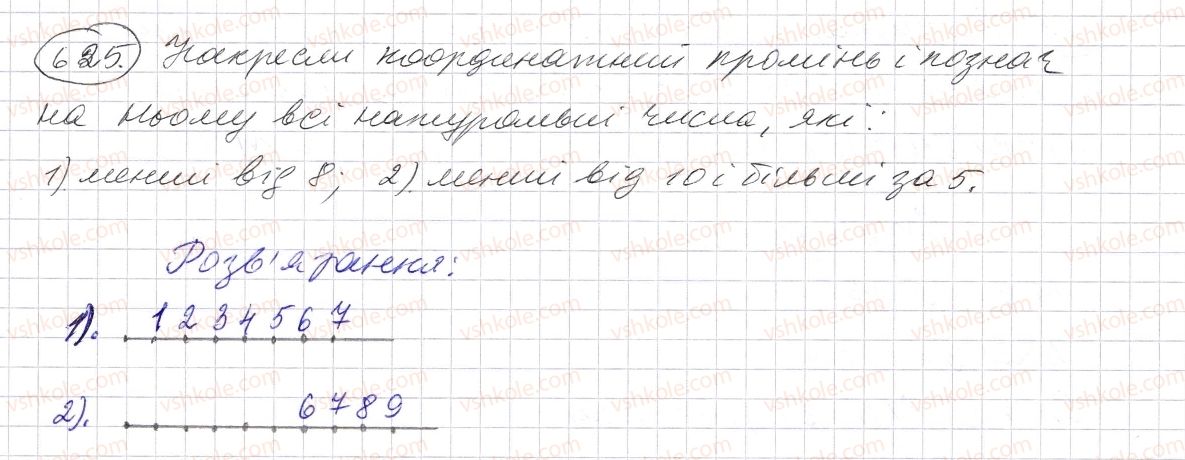 625. Накресли координатний промінь і познач
на ньому всі натуральні числа, які:
1) менші від 8; 2) менші від 10 і більші за 5.
Розв'язання:
1). 1 2 3 4 5 6 7
2). 6 7 8 9